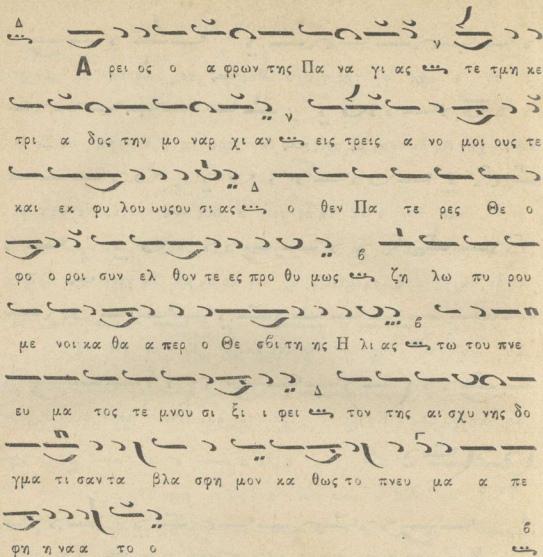 Α ρει ος ο α φρων της Πα να γι ας τε τμη κε
τρι α δος την μο ναρ χι αν εις τρεις α νο μοι ους τε
και εκ φυ λου ουσου σι ας ο θεν Πα τε ρες Θε ο
φο ο ροι συν ελ θον τε ες προ θυ μως ζη λω πυ ρου
με νοι κα θα α περ ο Θε σβι τη ης Η λι ας τω του πνε
ευ μα τος τε μνου σι ξι ι φει τον της αι σχυ νης δο
γμα τι σαν τα βλα σφη μον κα θως το πνευ μα α πε
φη η να α το ο